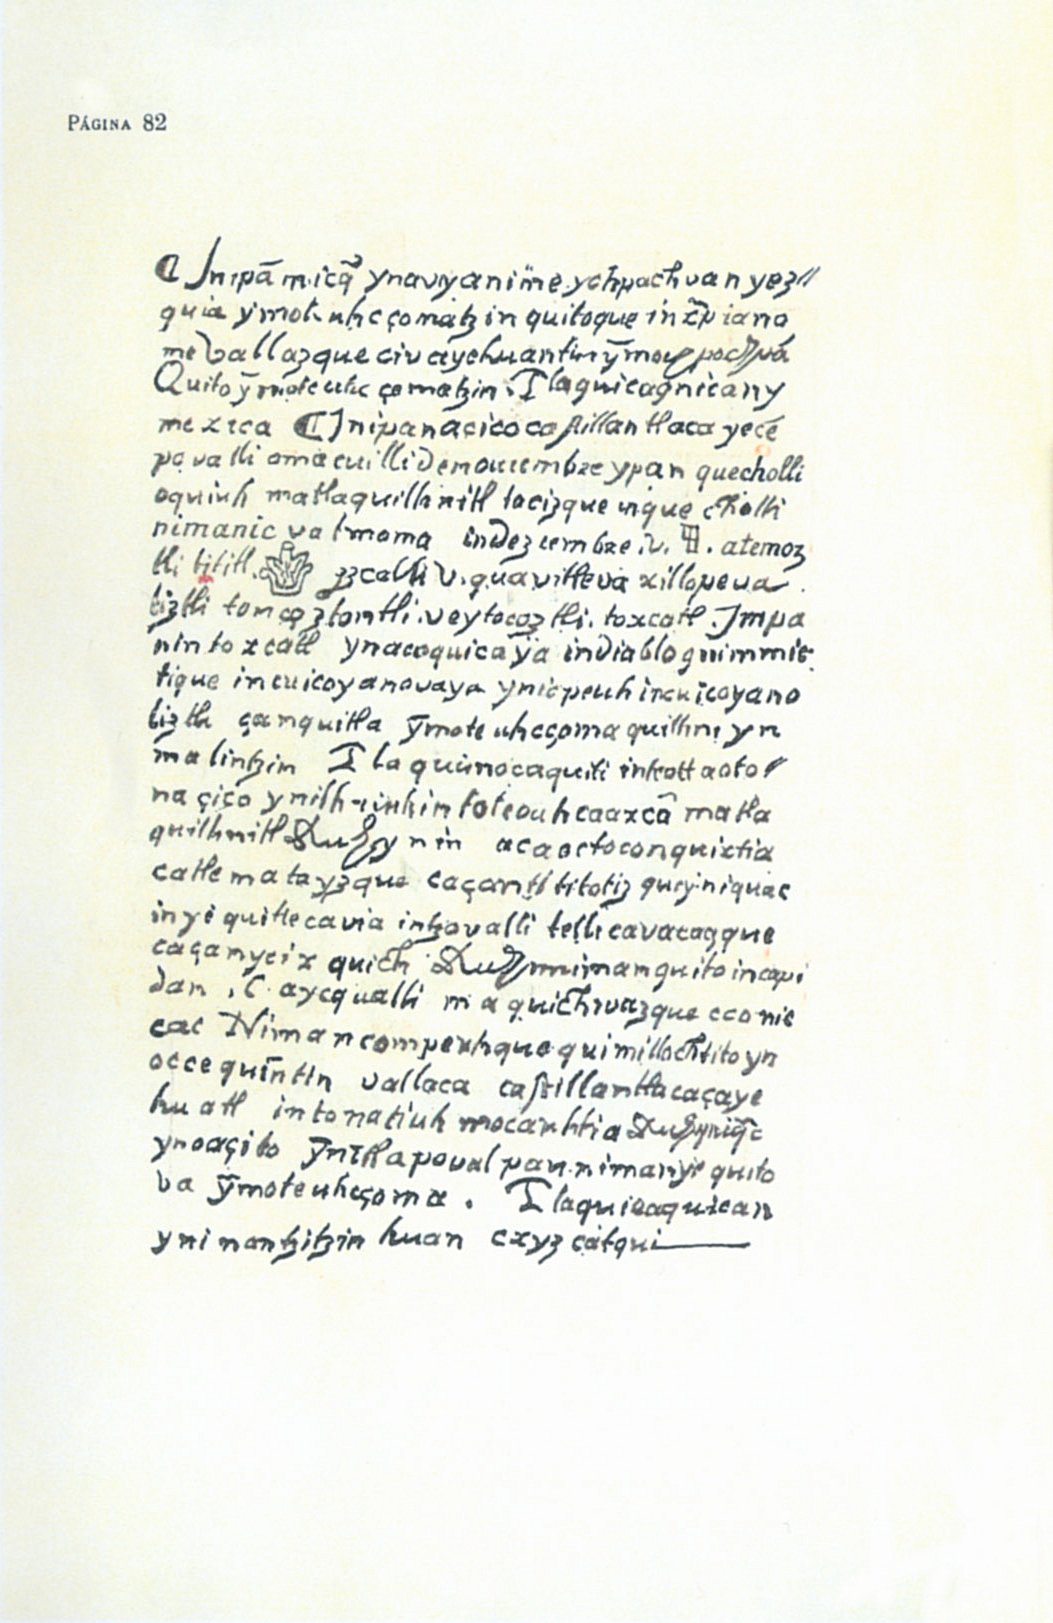 PÁGINA 82
Jnipā micq̃ ynavỹanime ychpochvan yez
quia ỹmoteuhcçomatzin quitoque in xp̃iano
me vallazque civ ayehuantin ỹmo
Quito ỹmoteuhcçomatzin. Tlaquicaqnican y
mexica Jnipanacico castillantlaca yece
povalli omacuilli de mouiembre ypan quecholli
oquiuh matlaquilhuitl tocizque inque cholli
nimanic valmoma in deziembre .iv. atemoz
tli tititl. yzcalli v. quavitleva xillopeva
liztli toncoztontli. veytocoztli. toxcatl. Jmpa
nin toxcatl ynacoquicaya in diablo quimmic
tique incuicoyanovaya ynicpeuh incuicoyano
liztli çanquitla ỹmoteuhcçoma quilhui yn
malintzin Tlaquimocaquiti inteotl aoto
naçico ynilhuiuhtzin toteouh caaxcã matla
quilhuitl Auh ynin acaoctoconquixtia
catle matayzque caçantitotitotiz quey. niquac
inye quitlecavia intzovalli tellicavacazque
caçanyeix quich Auh niman quito in capi
dan .C. aycqualli ma quichivazque cconic
cac Niman compeuhque quimillochtito yn
occequintin vallaca castillantlaca çaye
huatl intonatiuh mocauhtia Auh yniq̃c
ynoaçito ynitlapoualpan. nimanye quito
va ỹmoteuhcçoma . Tlaquicaquican
yninantzitzin huan cxyz catqui